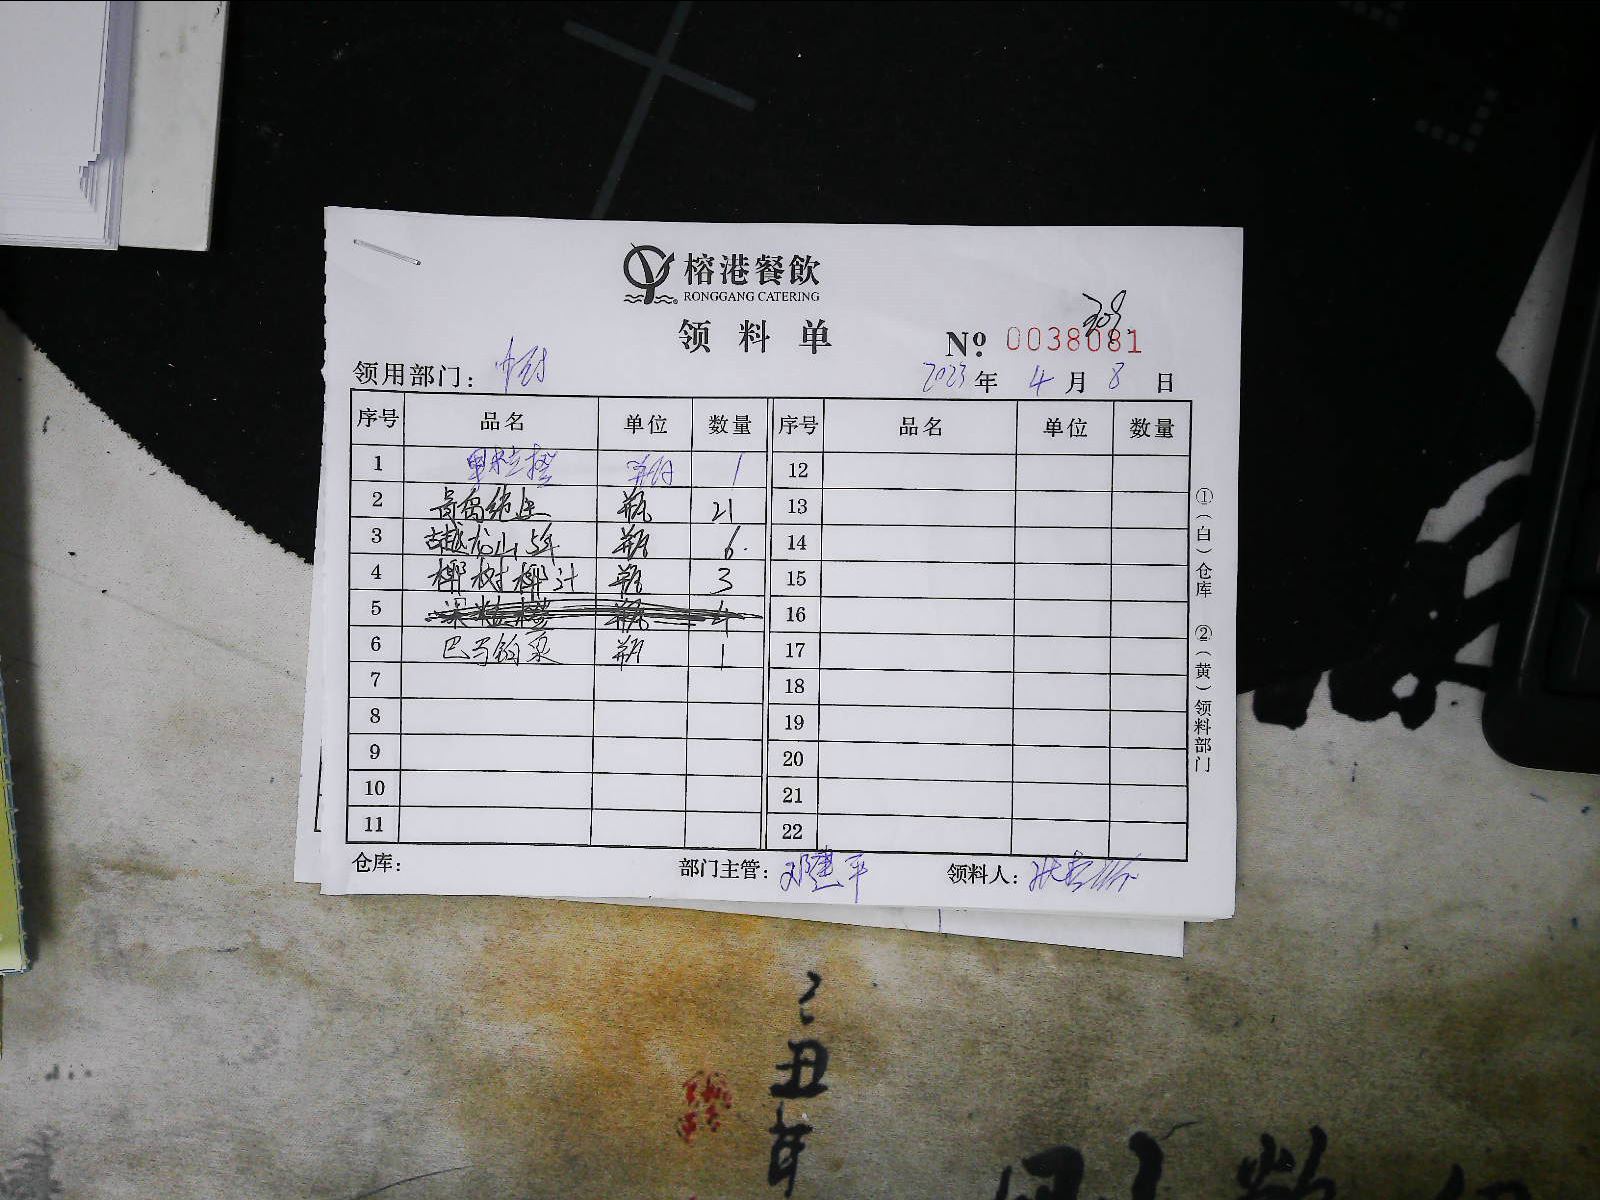 榕港餐飲
RONGGANG CATERING
领料单
No. 0038081
209
领用部门：
2023年 4月 8日
序号 品名 单位 数量 序号 品名 单位 数量
1 果粒橙 瓶 1 12
2 青岛纯生 瓶 21 13
3 古越龙山5年 瓶 6 14
4 椰树椰汁 瓶 3 15
5 果粒橙 瓶 4 16
6 巴马铂泉 瓶 1 17
7 18
8 19
9 20
10 21
11 22
①（白）仓库 ②（黄）领料部门
仓库： 部门主管：邓建平 领料人：
己丑年